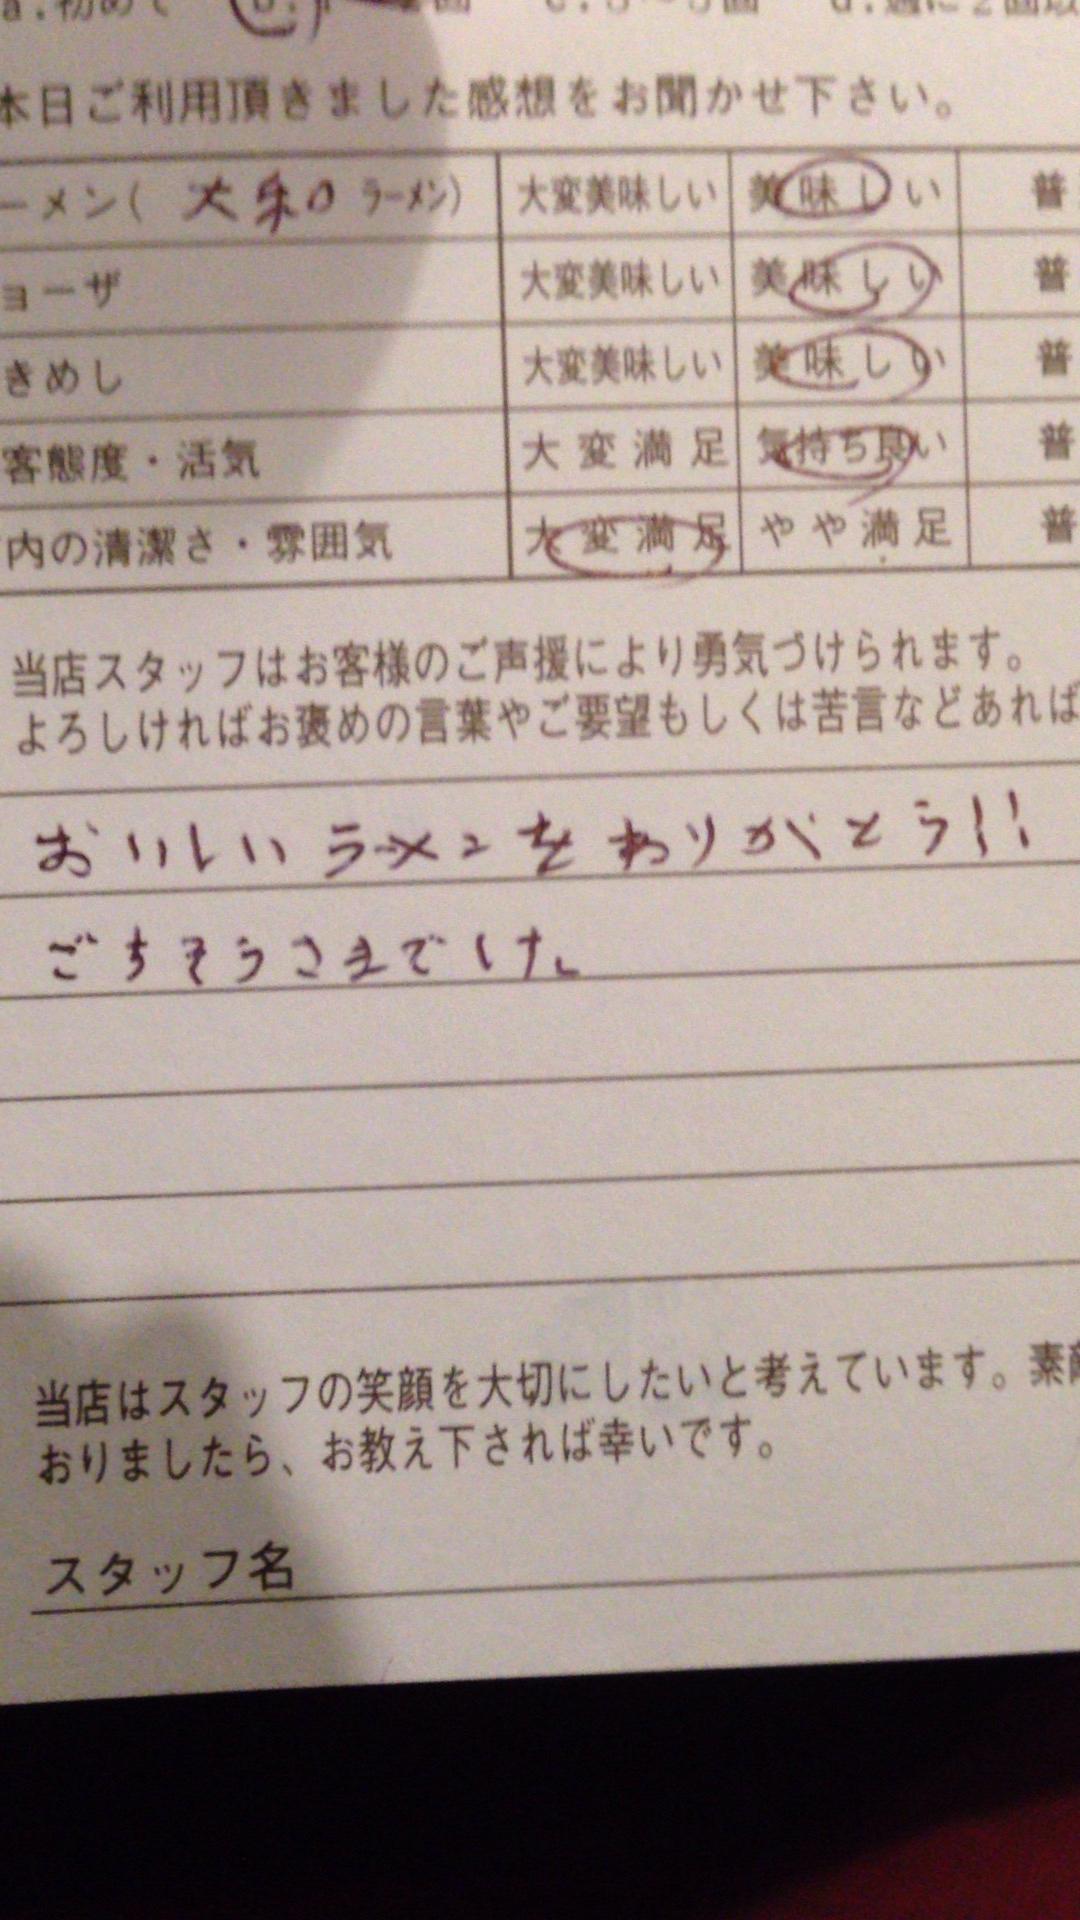 a.初めて b.1 2回 c.3～5回 d.週に2回以
本日ご利用頂きました感想をお聞かせ下さい。
ーメン( 大和 ラーメン) 大変美味しい 美味しい 普
ョーザ 大変美味しい 美味しい 普
きめし 大変美味しい 美味しい 普
客態度・活気 大変満足 気持ち良い 普
内の清潔さ・雰囲気 大変満足 やや満足 普
当店スタッフはお客様のご声援により勇気づけられます。
よろしければお褒めの言葉やご要望もしくは苦言などあれば
おいしいラーメンをありがとう!!
ごちそうさまでした。
当店はスタッフの笑顔を大切にしたいと考えています。素
おりましたら、お教え下されば幸いです。
スタッフ名